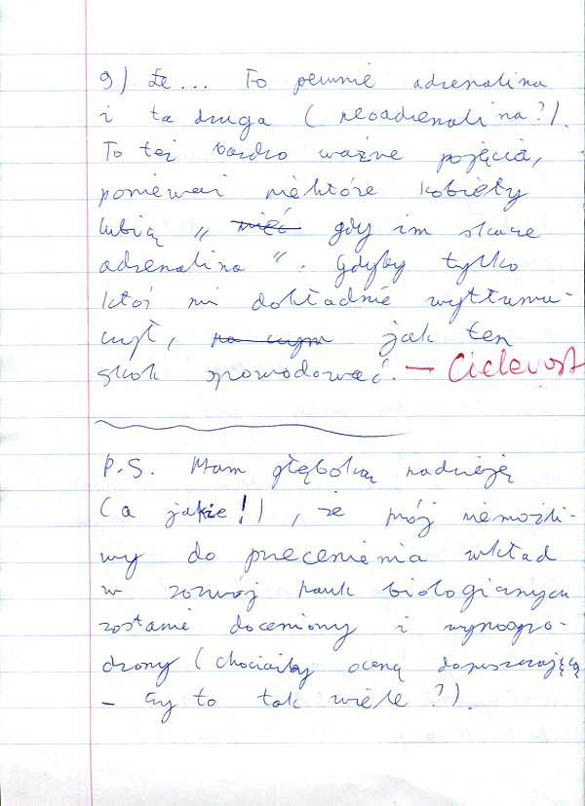 9) Łe... To pewnie adrenalina
i ta druga (neoadrenalina?).
To też bardzo ważne pojęcia,
ponieważ niektóre kobiety
lubią „ mieć gdy im skacze
adrenalina ". Gdyby tylko
ktoś mi dokładnie wytłuma-
czył, na czym jak ten
skok spowodować. –
P.S. Mam głęboką nadzieję
(a jakże!), że mój niemożli-
wy do przecenienia wkład
w rozwój nauk biologicznych
zostanie doceniony i wynagro-
dzony (chociażby oceną dopuszczającą
– czy to tak wiele?).